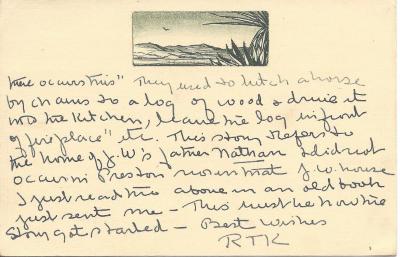 there occurs this" They used to hitch a horse
by chains to a log of wood & drive it
into the Kitchen, leave the log in front
of fireplace" etc. This story refers to
the home of J.W's father Nathan & did not
occur in Preston nor in that J.W. house
I just read the above in an old book
just sent me - This must be how the
story got started - Best wishes
RTK